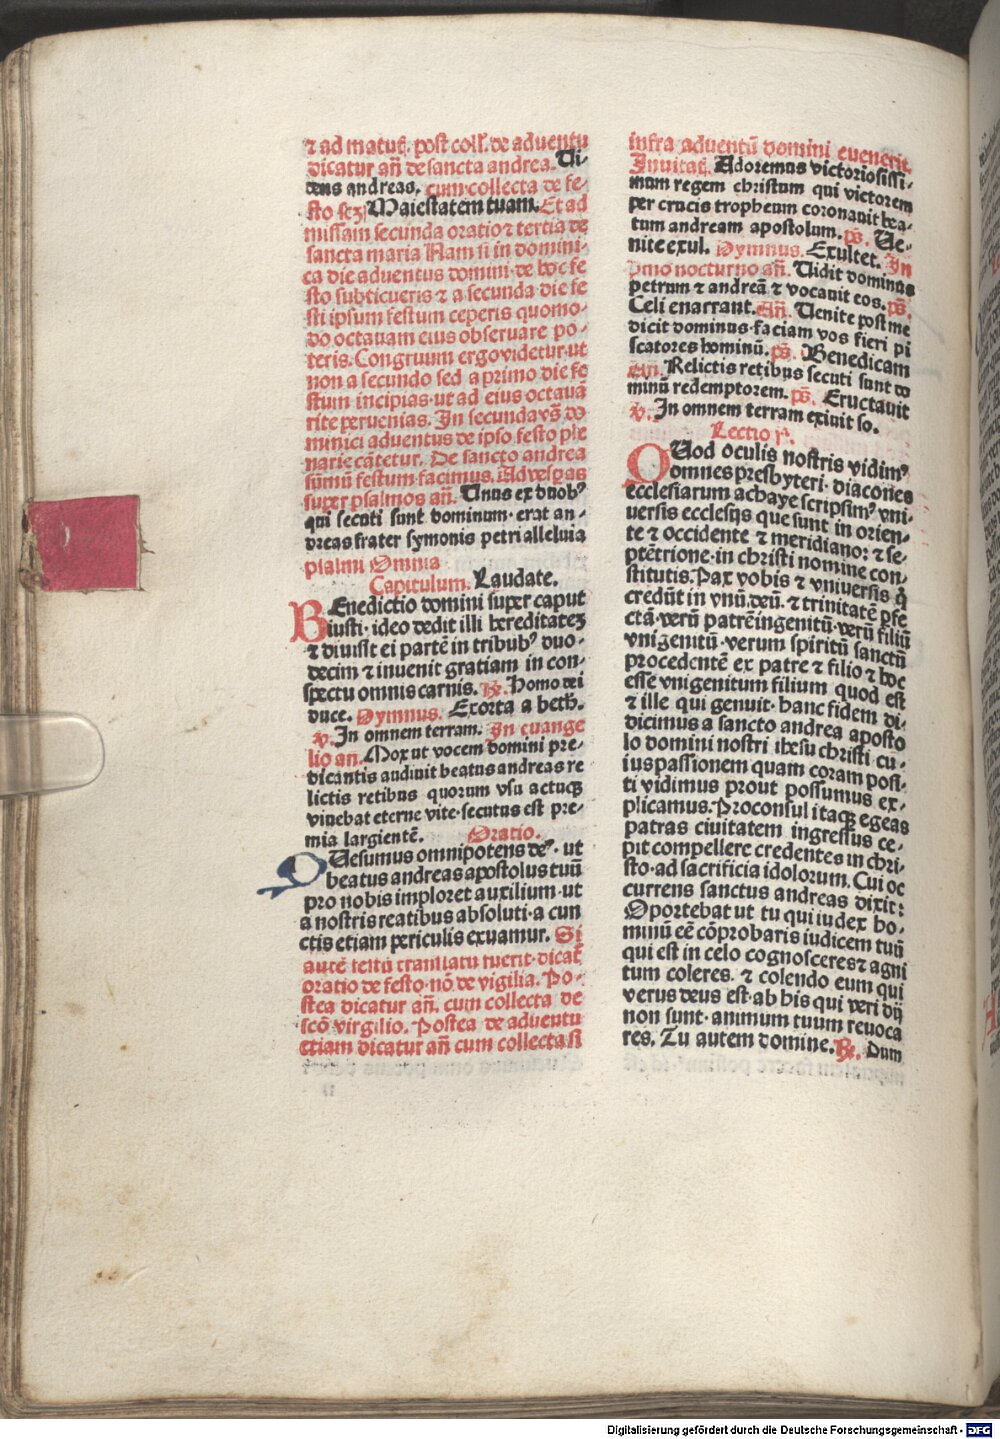 ⁊ ad matuť. post coll'. de aduentu
dicatur añ de sancta andrea. Ui-
dens andreas. cum collecta de fe-
sto scz Maiestatem tuam. Et ad
missam secunda oratio ⁊ tertia de
sancta maria Nam si in domini-
ca die aduentus domini de hoc fe
sto subticueris ⁊ a secunda die fe
sti ipsum festum ceperis quomo-
do octauam eius obseruare po-
teris. Congruum ergo videtur vt
non a secundo sed a primo die fe
stum incipias vt ad eius octauā
rite peruenias. In secunda v̄o do
minici aduentus de ipso festo ple
narie cātetur. De sancto andrea
sūmū festum facimus. Ad vesꝑas
super psalmos añ. Unus ex duobꝰ
qui secuti sunt dominum· erat an-
dreas frater symonis petri alleluia
psalmi Omnia
Capitulum. Laudate.
BEnedictio domini super caput
iusti· ideo dedit illi hereditatez
⁊ diuisit ei partē in tribubꝰ duo-
decim ⁊ inuenit gratiam in con-
spectu omnis carnis. ℟. Homo dei
duce. Hymnus. Exorta a beth.
℣. In omnem terram. In euange
lio an. Mox ut vocem domini pre-
dicantis audiuit beatus andreas re
lictis retibus quorum vsu actuqꝫ
viuebat eterne vite· secutus est pre-
mia largientē. Oratio.
QUesumus omnipotens deꝰ· ut
beatus andreas apostolus tuū
pro nobis imploret auxilium· ut
a nostris reatibus absoluti· a cun
ctis etiam periculis exuamur. Si
autē festū translatū fuerit· dicať
oratio de festo· nō de vigilia. Po-
stea dicatur añ. cum collecta de
scō virgilio. Postea de aduentu
etiam dicatur añ cum collecta si
infra aduentū domini euenerit.
Inuitať. Adoremus victoriosissi-
mum regem christum qui victorem
per crucis tropheum coronauit bea-
tum andream apostolum. pš. Ue-
nite exul. Hymnus. Exultet. In
pmo nocturno añ. Uidit dominus
petrum ⁊ andreā ⁊ vocauit eos. pš.
Celi enarrant. Añ. Uenite post me
dicit dominus· faciam vos fieri pi
scatores hominū. pš. Benedicam
Añ. Relictis retibus secuti sunt do
minū redemptorem. pš. Eructauit
℣. In omnem terram exiuit so.
Lectio jª.
QUod oculis nostris vidimꝰ
omnes presbyteri· diacones
ecclesiarum achaye scripsimꝰ vni-
uersis ecclesijs que sunt in orien-
te ⁊ occidente ⁊ meridiano: ⁊ se-
ptētrione· in christi nomine con-
stitutis. Pax vobis ⁊ vniuersis q̄
credūt in vnū deū. ⁊ trinitatē ꝑfe
ctā· verū patrē ingenitū· verū filiū
vnigenitū· verum spiritū sanctū
procedentē ex patre ⁊ filio ⁊ hoc
esse vnigenitum filium quod est
⁊ ille qui genuit· hanc fidem di-
dicimus a sancto andrea aposto
lo domini nostri ihesu christi cu-
ius passionem quam coram posi-
ti vidimus prout possumus ex-
plicamus. Proconsul itaqꝫ egeas
patras ciuitatem ingressus ce-
pit compellere credentes in chri-
sto· ad sacrificia idolorum. Cui oc
currens sanctus andreas dixit:
Oportebat ut tu qui iudex ho-
minū eē cōprobaris iudicem tuū
qui est in celo cognosceres ⁊ agni
tum coleres. ⁊ colendo eum qui
verus deus est· ab his qui veri dij
non sunt· animum tuum reuoca
res. Tu autem domine. ℟. Dum
Digitalisierung gefördert durch die Deutsche Forschungsgemeinschaft - DFG